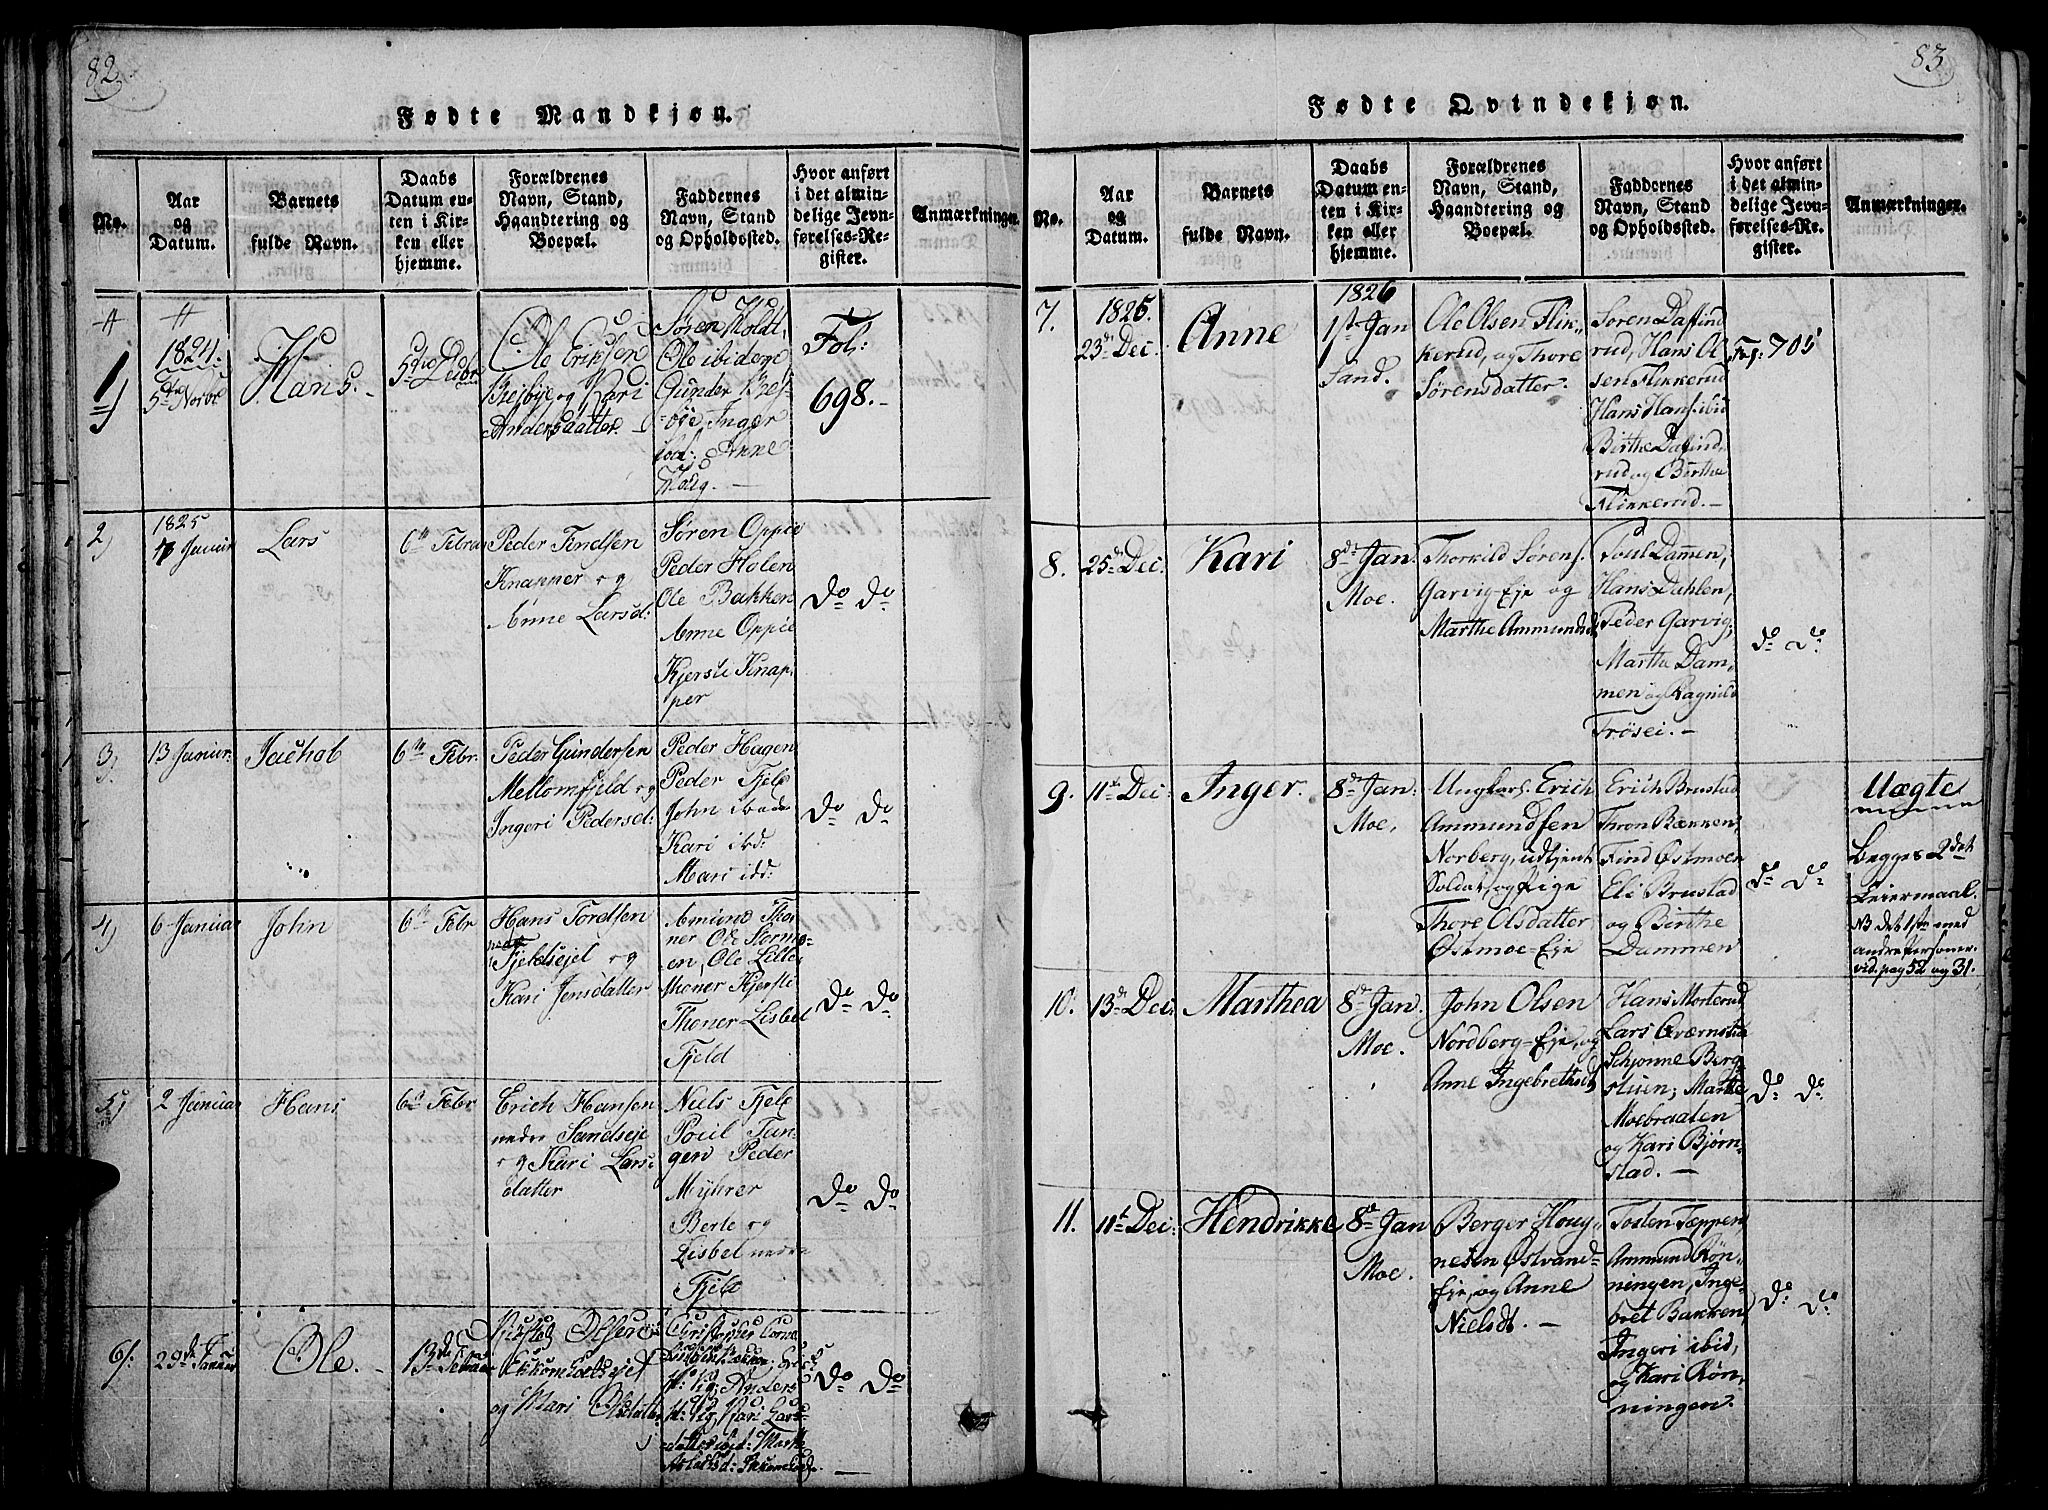 82.
Fødte Mandkjøn.
No.
Aar
og
Datum.
Barnets
fulde Navn.
Daabs
Datum en-
ten i Kir-
ken eller
hjemme.
Forældrenes
Navn, Stand,
Haandtering og
Boepæl.
Faddernes
Navn, Stand
og Opholdssted.
Hvor anført
i det almin-
delige Jevn-
førelses-Re-
gister.
Anmærkninger.
1)
1824.
5te Novbr
Hans.
5te Decbr
Ole Eriksen
og Kari
Andersdatter.
Søren Holdt,
Ole ibidem
Gunder
Inger
ibd: Anne
Houg.
Fol:
698.
2)
1825
Januar
Lars
6te Febru
Peder Findsen
Knapper og
Anne Larsd:
Søren Oppie
Peder Holen
Ole Bakken
Anne Oppie
Kjersti Knap-
per
Do Do
3)
13 Januar
Jachob
6te Febr.
Peder Gundersen
Mellomfjeld og
Ingeri Pedersd:
Peder Hagen
Peder Fjele
John
Kari ibd:
Mari ibd:
Do Do
4)
6 Januar
John
6te Febr
Hans Tordsen
nedre
Fjeldsejet og
Kari Jensdatter
Amund Tho-
ner, Ole Stormo-
en, Ole Lille-
thoner Kjersti
Thoner Lisbet
Fjeld
Do Do
5)
2 Januar
Hans
6te Febr
Erich Hansen
nedre Sandseje
og Kari Lars
datter
Niels Fjele
Poul Tan-
gen Peder
Myhrer
Berte og
Lisbet nedre
Fjele
Do Do
6).
29de Januar
Ole.
13de
Olsen
og Mari Olsdatter
Anders
Kari Lars-
Do Do
83.
Fødte Qvindekjøn.
No.
Aar
og
Datum.
Barnets
fulde Navn.
Daabs
Datum en-
ten i Kir-
ken eller
hjemme.
Forældrenes
Navn, Stand,
Haandtering og
Boepæl.
Faddernes
Navn, Stand
og Opholdssted.
Hvor anført
i det almin-
delige Jevn-
førelses-Re-
gister.
Anmærkninger.
7.
1825.
23de Dec.
Anne
1826
1ste Jan
Sand.
Ole Olsen Flik-
kerud, og Thore
Sørensdatter.
Søren Daffind
rud, Hans Ol
sen Flikkerud
Hans Hans. ibid
Birthe Daffind,
rud og Birthe
Flikkerud.
Fol: 705
8.
25de Dec.
Kari
8de Jan
Moe.
Thorkild Sørens.
Garvig-Eje og
Marthe Ammundsd.
Poul Dammen,
Hans Dahlen,
Peder Garvig,
Marthe Dam-
men og Ragnild
Trøsei.
Do Do
9.
11te Dec
Inger.
8de Jan.
Moe.
Ungkarl. Erich
Ammundsen
Norberg, udtjent
Soldat og Pige
Thore Olsdatter
Østmoe-Eje
Erich Brustad
Thron Bækken,
Find Østmoen
Eli Brustad
og Birthe
Dammen
Do Do
Uægte
begges 2det
Leiermaal.
NB det 1ste med
andre Personer.
vid. pag 52 og 31.
10.
13de Dec.
Marthea
8de Jan.
Moe.
John Olsen
Nordberg-Eje, og
Anne Ingebrethsd.
Hans Morterud
Lars Qværnstu
Schjønne Berg
stuen, Marthe
Moebraaten
og Kari Bjørn-
stad.
Do Do
11.
11te Dec.
Hendrikke
8de Jan
Moe.
Berger Houg-
nesen Østvand-
Eje, og Anne
Nielsdt.
Tosten Tæppen,
Ammund Røn-
ningen, Inge-
bret Bakken
Ingeri ibid,
og Kari Røn-
ningen.
Do Do